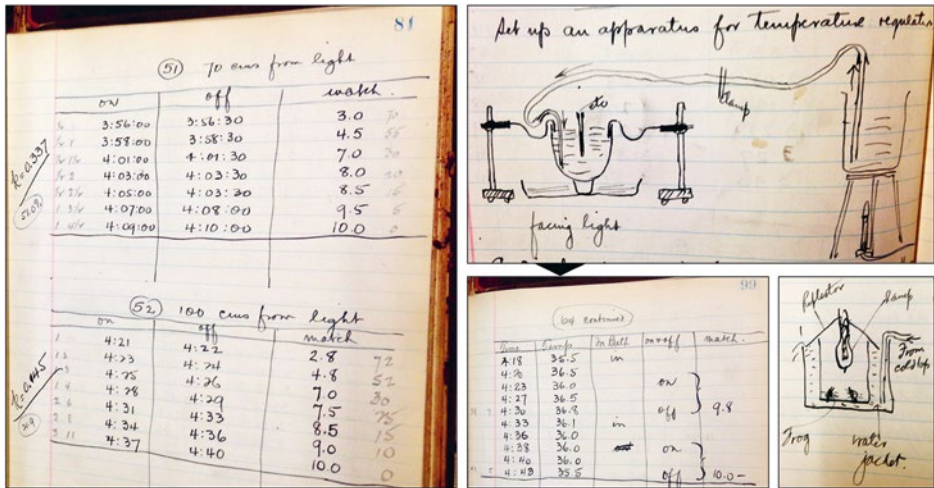 81
51 70 cms from light
on off match.
3:56:00 3:56:30 3.0 70
3:58:00 3:58:30 4.5 55
4:01:00 4:01:30 7.0 30
4:03:00 4:03:30 8.0 20
4:05:00 4:03:30 8.5 15
4:07:00 4:08:00 9.5 5
4:09:00 4:10:00 10.0 0
k=0.337
52 100 cms from light
on off match
4:21 4:22 2.8 72
4:23 4:24 4.8 52
4:25 4:26 7.0 30
4:28 4:29 7.5 25
4:31 4:33 8.5 15
4:34 4:36 9.0 10
4:37 4:40 10.0 0
k=0.045
Set up an apparatus for temperature regulation
clamp
facing light
99
64 continued
Time Temp in Bath on+off match.
4:18 35.5 in
4:20 36.5
4:23 36.0 on
4:27 36.5
4:30 36.8 off 9.8
4:33 36.1 in
4:36 36.0
4:38 36.0 on
4:40 36.0
4:43 35.5 off 10.0-
Reflector
Lamp
From
cold tap
Frog
water
jacket.